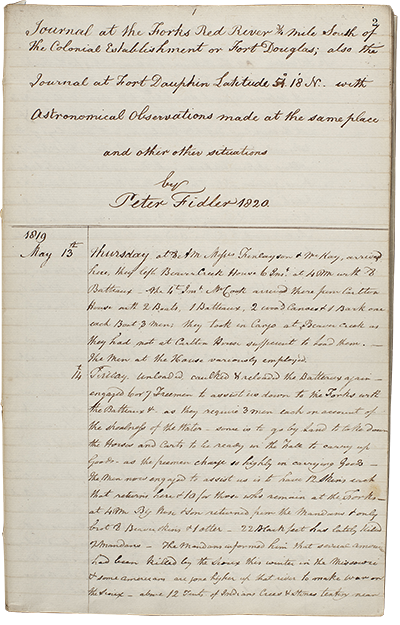 2
Journal at the Forks Red River ¾ mile South of
the Colonial Establishment or Fort Douglas; also the
Journal at Fort Dauphin Latitude 51° 18 N. with
Astronomical Observations made at the same place
and other other situations
by
Peter Fidler 1820.
1819
May 13th Thursday at AM Messrs Finlayson & McKay, arrived
here, they left Beaver Creek House 6 Inst. at 4 PM with
Batteaux - the 4th Inst. Mr Cook arrived there from Carlton
House with 2 Boats, 1 Batteaux, 2 wood Canoes & 1 Bark one
each Boat 3 men; they took in Cargo at Beaver Creek as
they had not at Carlton House sufficient to load them. —
The Men at the House variously employed.
14th Friday. unloaded caulked & reloaded the Batteaux again —
engaged 6 or 7 Freemen to assist us down to the Forks with
the Batteaux &c. as they require 3 men each on account of
the shoalness of the Water - some is to go by Land to take down
the Horses and Carts to be ready in the Fall to carry up
Goods - as the freemen charge so highly in carrying Goods —
the Men now engaged to assist us is to have 12 Skins each
that returns here & 10 for those who remain at the Forks —
at 4 PM & Son returned from the Mandans & only
Beaver skins & 1 otter - 22 Blackfeet has lately killed
2 Mandans - The Mandans informed him that several
had been killed by the Sioux this winter in the Missouri
& some americans are gone higher up that river to make War on
the Sioux - above 12 Tents of Indians Crees & Stones tenting near